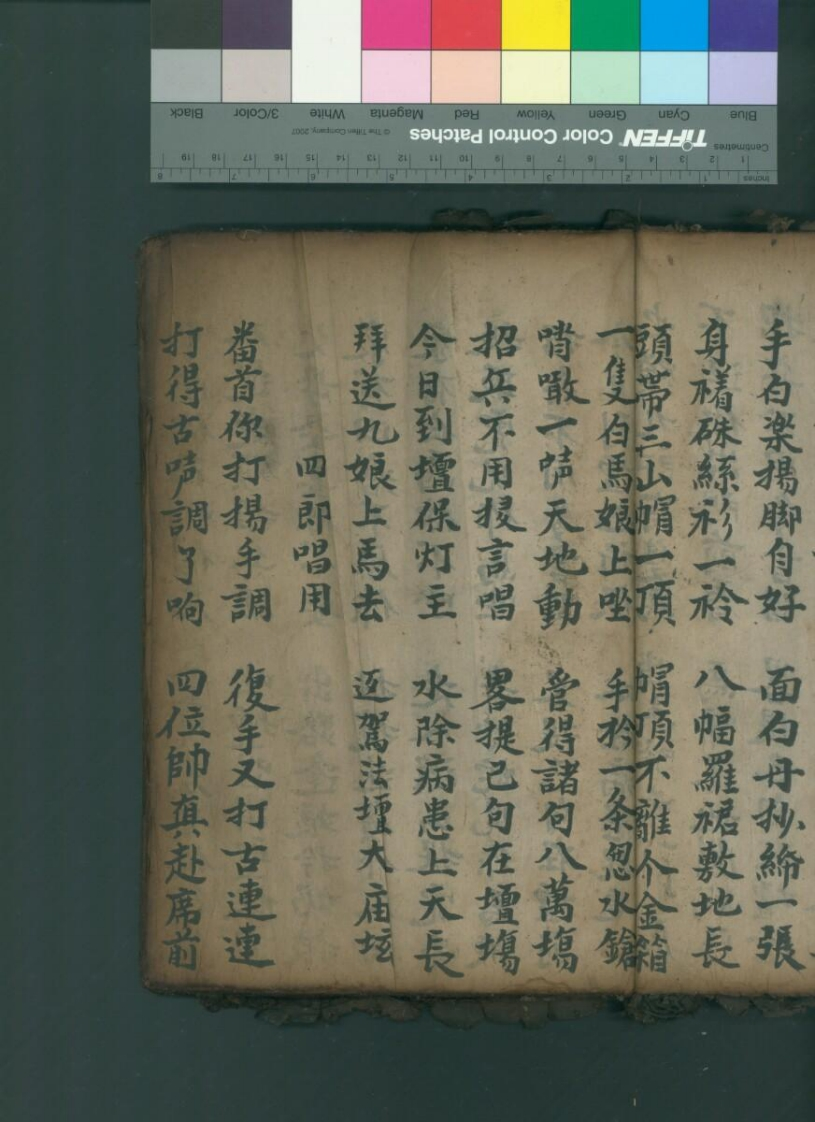 Blue Cyan Green Yellow Red Magenta White 3/Color Black
TIFFEN Color Control Patches © The Tiffen Company, 2007
Centimetres
Inches
手白楽揚脚自好 面白丹抄綿一張
身襠硃絲衫一袊 八幅羅裙敷地長
頭帶三山帽一頂 帽頂不離个金箱
一隻白馬娘上坐 手衿一条忽水鎗
哨噉一声天地動 營得諸句八萬塲
招兵不用授言唱 畧提己句在壇塲
今日到壇保灯主 水除病患上天長
拜送九娘上馬去 返駕法壇大庙坛
四郎唱用
番首你打揚手調 復手又打古連連
打得古声調了响 四位帥真赴席前